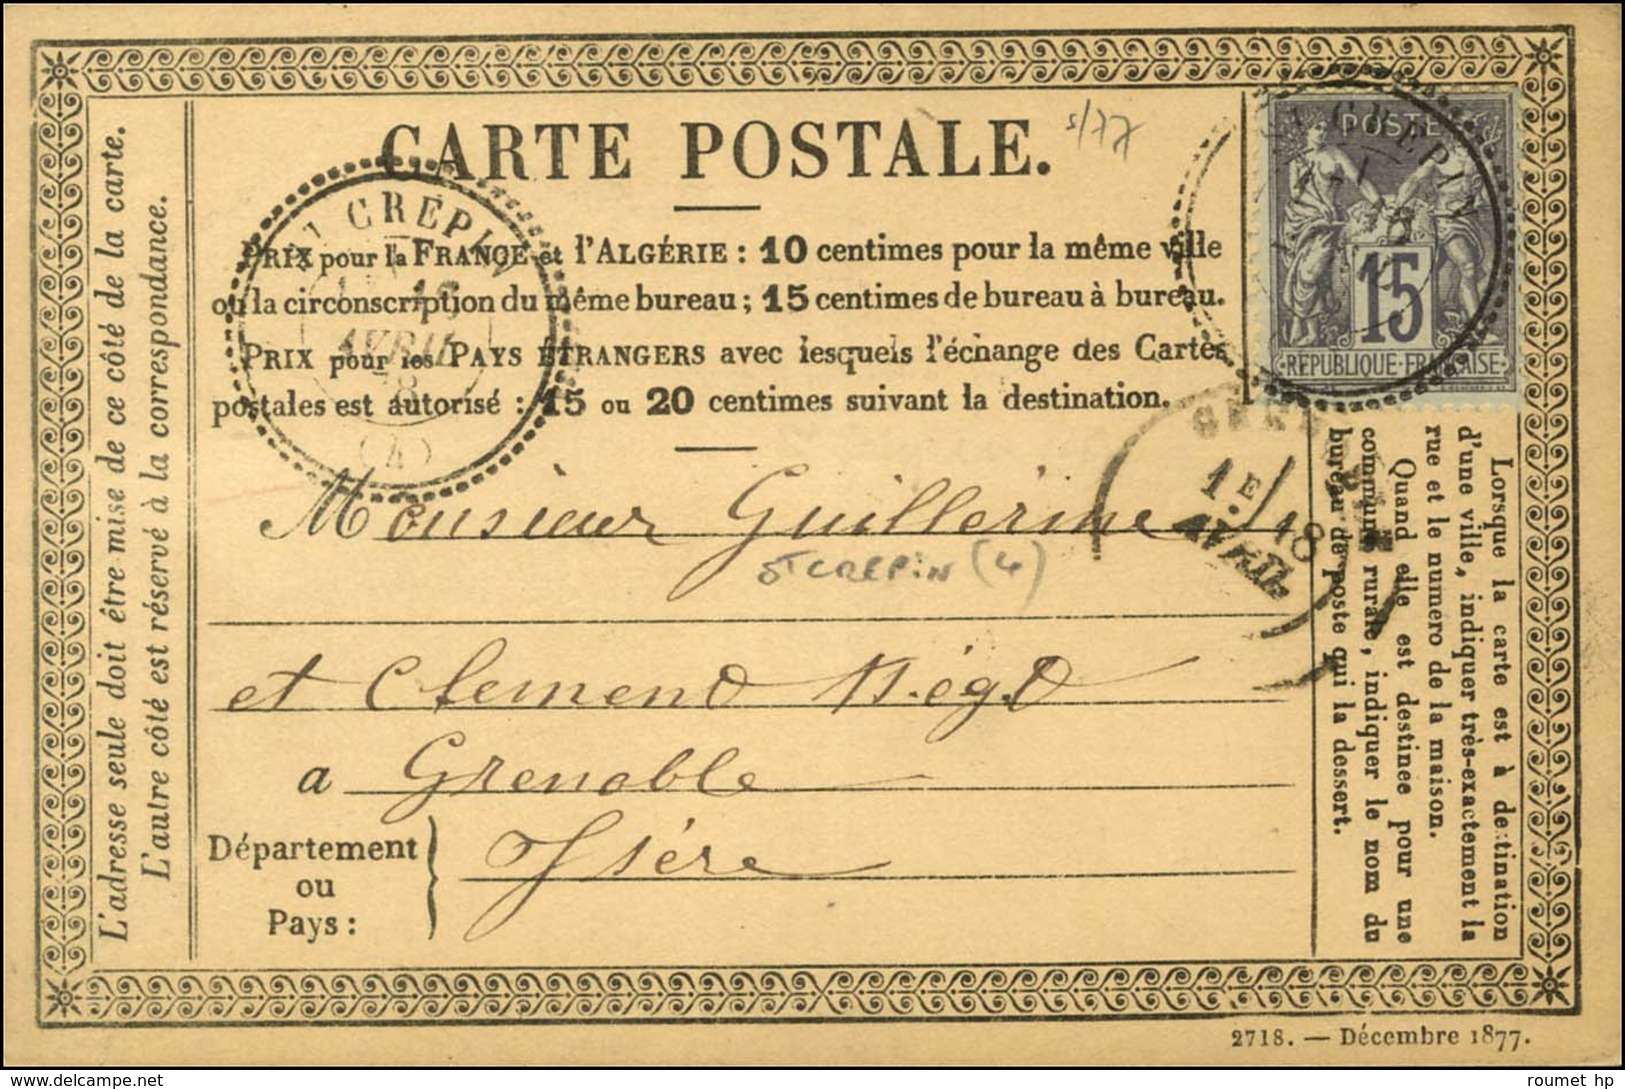 CARTE POSTALE.
s/77
PRIX pour la FRANCE et l'ALGÉRIE : 10 centimes pour la même ville
ou la circonscription du même bureau ; 15 centimes de bureau à bureau.
PRIX pour les PAYS ÉTRANGERS avec lesquels l'échange des Cartes
postales est autorisé : 15 ou 20 centimes suivant la destination.
CREPIN
16
AVRIL
(4)
St CREPIN
POSTE
15
REPUBLIQUE·FRANÇAISE
1E/18
AVRIL
Monsieur Guillerme
St CREPIN (4)
et Clement Négt
a Grenoble
Département
ou
Pays :
Isère
L'adresse seule doit être mise de ce côté de la carte.
L'autre côté est réservé à la correspondance.
Lorsque la carte est à destination
d'une ville, indiquer très-exactement la
rue et le numero de la maison.
Quand elle est destinee pour une
commune rurale, indiquer le nom du
bureau de poste qui la dessert.
2718. — Décembre 1877.
roumet hp